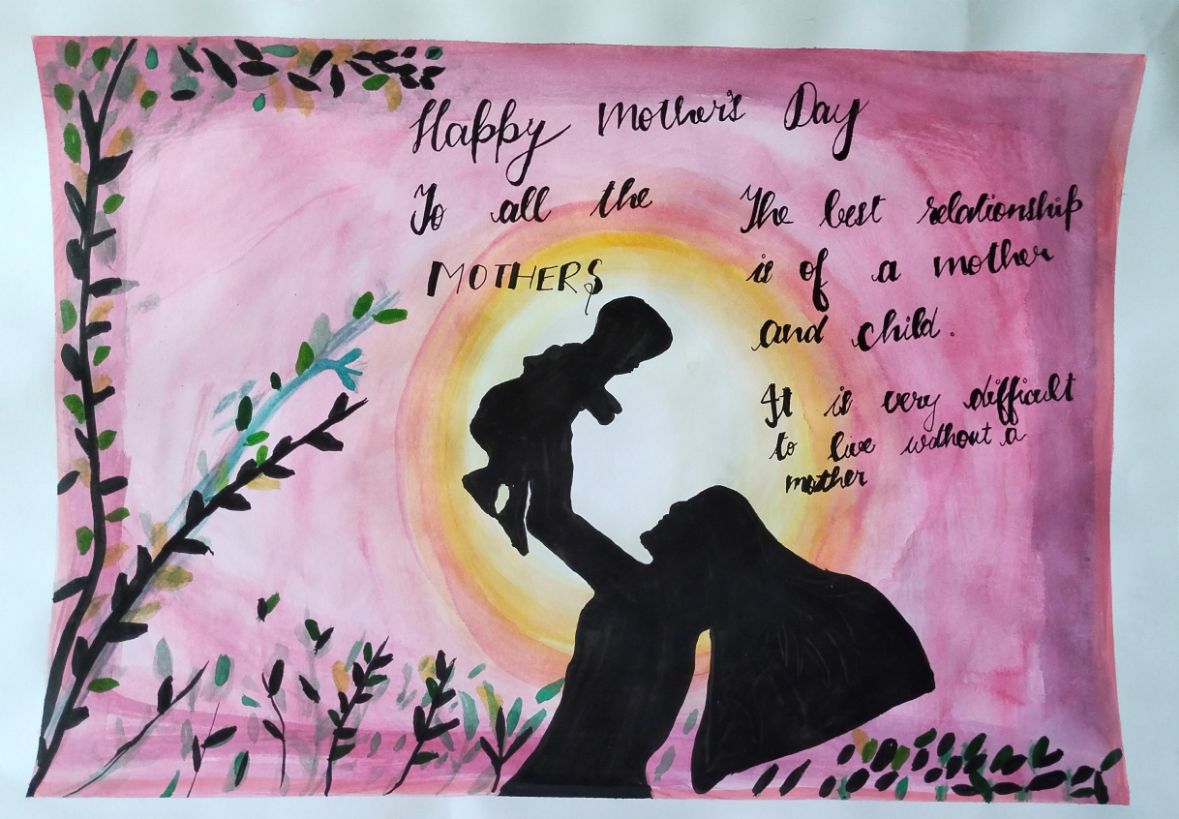 Happy Mother's Day
To all the
MOTHERS
The best relationship
is of a mother
and child.
It is very difficult
to live without a
mother